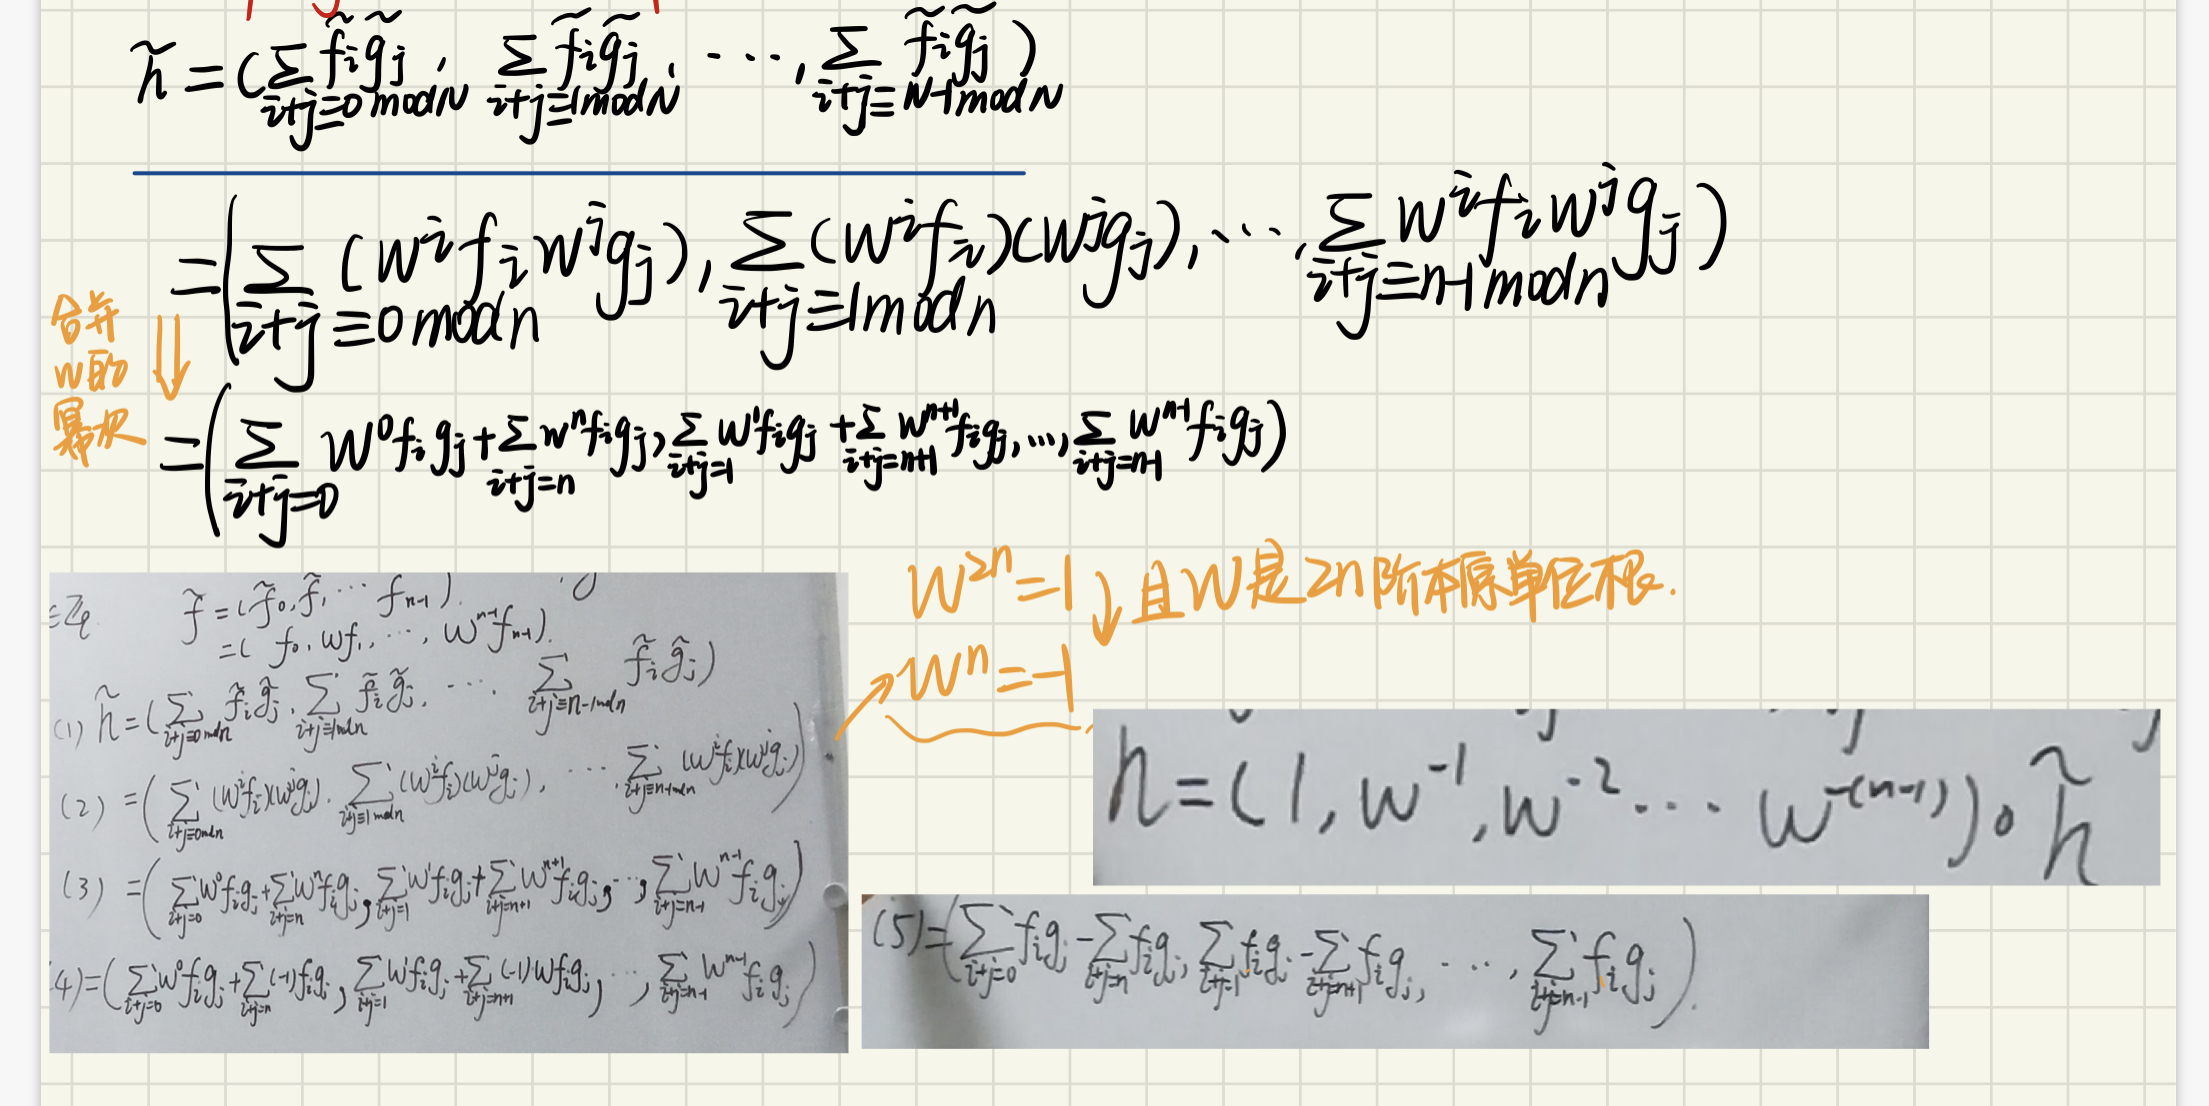 h̃ = (∑_{i+j≡0 mod N} f̃_i g̃_j, ∑_{i+j≡1 mod N} f̃_i g̃_j, ⋯, ∑_{i+j≡N-1 mod N} f̃_i g̃_j)
= (∑_{i+j≡0 mod n} (w^i f_i w^j g_j), ∑_{i+j≡1 mod n} (w^i f_i)(w^j g_j), ⋯, ∑_{i+j≡n-1 mod n} w^i f_i w^j g_j)
合并
w的
幂次
= (∑_{i+j=0} w^0 f_i g_j + ∑_{i+j=n} w^n f_i g_j, ∑_{i+j=1} w^1 f_i g_j + ∑_{i+j=n+1} w^{n+1} f_i g_j, ⋯, ∑_{i+j=n-1} w^{n-1} f_i g_j)
w^{2n} = 1 且w是2n阶本原单位根.
w^n = -1
∈ℤ_q f̃ = (f̃_0, f̃_1 ⋯ f_{n-1}).
= (f_0, wf_1, ⋯, w^{n-1} f_{n-1}).
(1) h̃ = (∑_{i+j≡0 mod n} f̃_i g̃_j, ∑_{i+j≡1 mod n} f̃_i g̃_j, ⋯, ∑_{i+j≡n-1 mod n} f̃_i g̃_j)
(2) = (∑_{i+j≡0 mod n} (w^i f_i)(w^j g_j), ∑_{i+j≡1 mod n} (w^i f_i)(w^j g_j), ⋯, ∑_{i+j≡n-1 mod n} (w^i f_i)(w^j g_j))
(3) = (∑_{i+j=0} w^0 f_i g_j + ∑_{i+j=n} w^n f_i g_j, ∑_{i+j=1} w^1 f_i g_j + ∑_{i+j=n+1} w^{n+1} f_i g_j, ⋯, ∑_{i+j=n-1} w^{n-1} f_i g_j)
4) = (∑_{i+j=0} w^0 f_i g_j + ∑_{i+j=n} (-1) f_i g_j, ∑_{i+j=1} w^1 f_i g_j + ∑_{i+j=n+1} (-1) w f_i g_j, ⋯, ∑_{i+j=n-1} w^{n-1} f_i g_j)
h = (1, w^{-1}, w^{-2} ⋯ w^{-(n-1)}) ∘ h̃
(5) = (∑_{i+j=0} f_i g_j - ∑_{i+j=n} f_i g_j, ∑_{i+j=1} f_i g_j - ∑_{i+j=n+1} f_i g_j, ⋯, ∑_{i+j=n-1} f_i g_j).